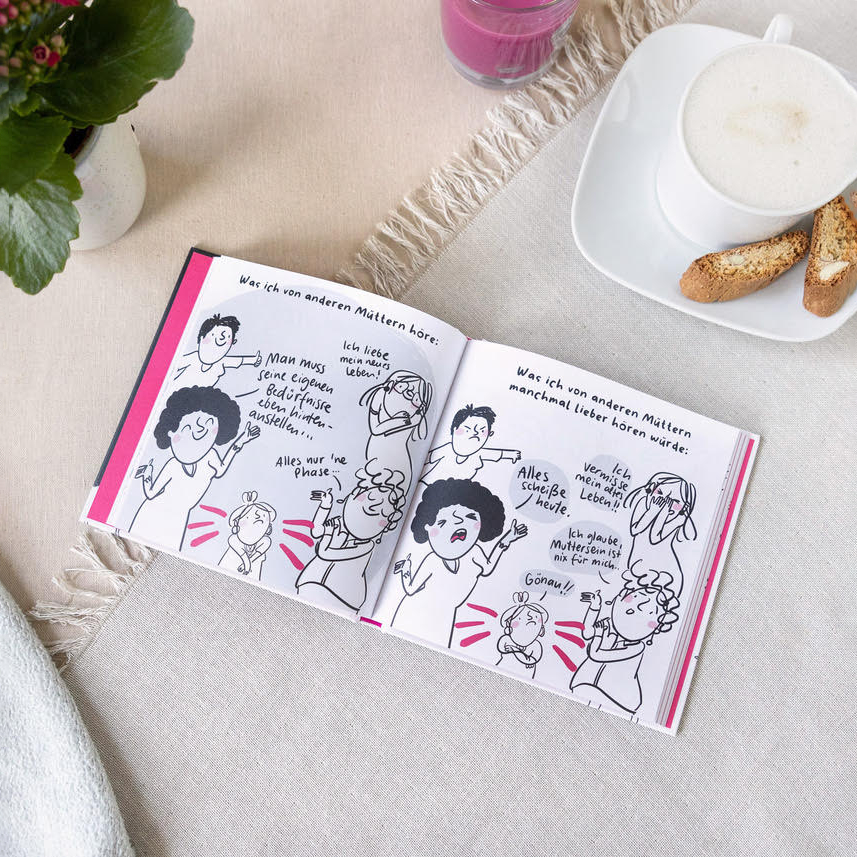 Was ich von anderen Müttern höre:
Ich liebe
mein neues
Leben!
Man muss
seine eigenen
Bedürfnisse
eben hinten-
anstellen...
Alles nur 'ne
Phase...
Was ich von anderen Müttern
manchmal lieber hören würde:
Alles
scheiße
heute.
Ich
vermisse
mein altes
Leben!!
Ich glaube,
Muttersein ist
nix für mich..
Gönau!!